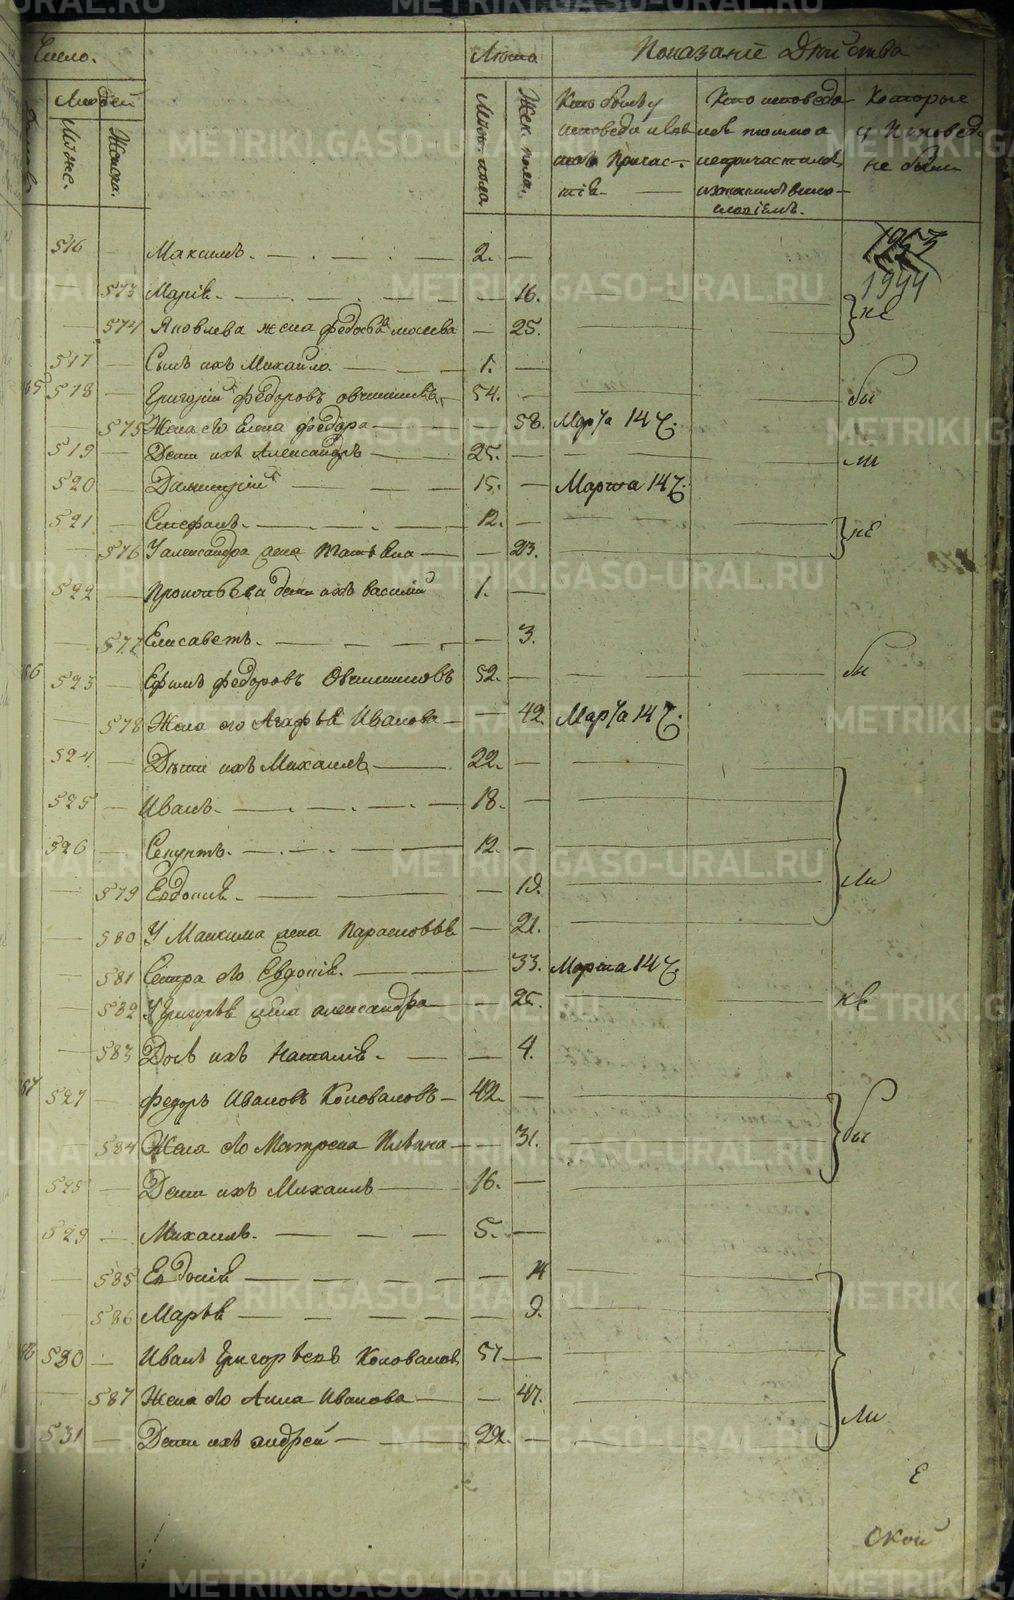 Число.
Лѣта
Показанїе Дѣйства
Людей
Мужс.
Женска.
Муж. пола.
Жен. пола.
Кто былъ у исповеди и св. причастїя.
Кто исповедался токмо а непричастился
Которые у исповеди не были
516 — Максимъ. — 2. —
1944
— 573 Марїя. — 16.
— 574 Яковлева жена Федосья — 25. не
517 Сынъ ихъ Михайло — 1. —
85 518 — Григорий Федоровъ Овчинниковъ 54. — бы
575 Жена его Елена Федора — 58. Марта 14 ч.
519 — Дети ихъ Александръ — 25. — ли
520 — Димитрий — 15. — Марта 14 ч.
521 — Стефанъ. — 12. — не
— 576 У Александра жена Татьяна — 23.
522 — Прокопьева дети ихъ Василий 1. —
— 577 Елисаветъ. — 3.
86 523 — Ефимъ Федоровъ Овчинниковъ 52. — бы
— 578 Жена его Агафья Иванова — 42 Марта 14 ч.
524 — Дѣти ихъ Михаилъ — 22. —
525 — Иванъ. — 18. —
526 — 12. —
— 579 Евдокия. — 19. ли
— 580 У Максима жена — 21.
— 581 Сестра его Евдокїя. — 33. Марта 14 ч.
— 582 У Григорья жена Александра — 25. не
— 583 Дочь ихъ Наталия. — 4.
87 527 — Федоръ Ивановъ Коноваловъ — 42. —
— 584 Жена его Матрена — 31. бы
525 — Дети ихъ Михаилъ — 16. —
529 — Михаилъ. — 5. —
— 585 Евдокїя — 14
— 586 Марья — 9.
88 530 — Иванъ Григорьевъ Коноваловъ 51 —
— 587 Жена его Анна Иванова — 47. ли
531 — Дети ихъ Андрей — 22. —
Е
ской
METRIKI.GASO-URAL.RU